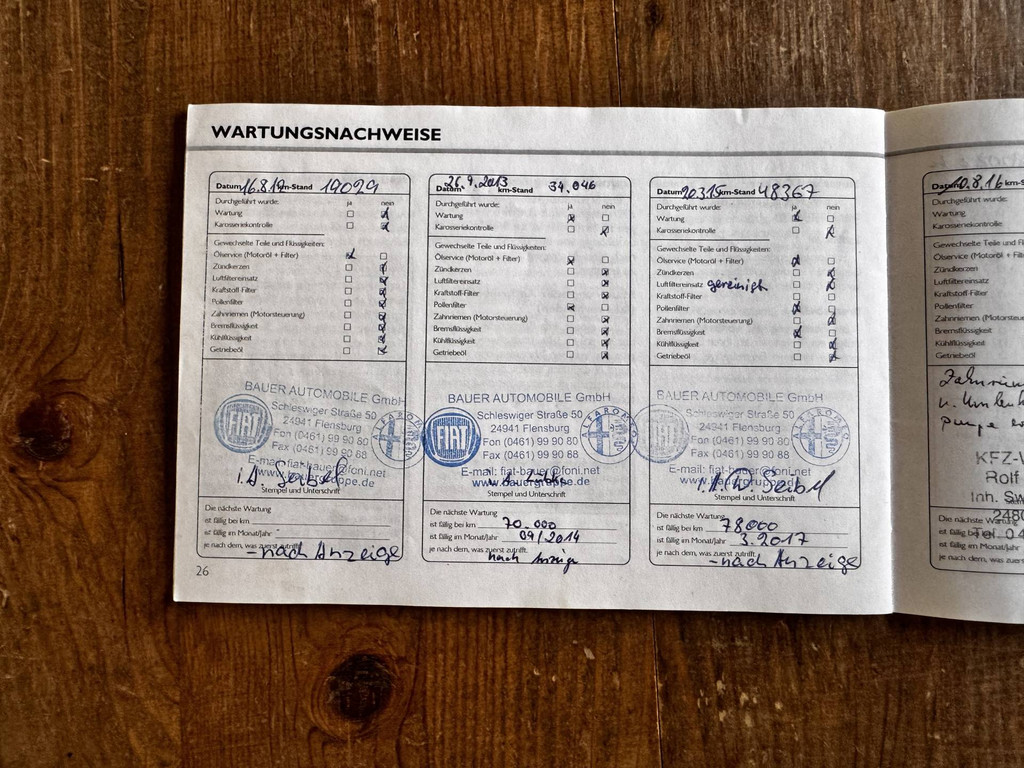 WARTUNGSNACHWEISE
Datum 16.8.12 km-Stand 19029
Durchgeführt wurde: ja nein
Wartung
Karosseriekontrolle
Gewechselte Teile und Flüssigkeiten:
Ölservice (Motoröl + Filter)
Zündkerzen
Luftfiltereinsatz
Kraftstoff-Filter
Pollenfilter
Zahnriemen (Motorsteuerung)
Bremsflüssigkeit
Kühlflüssigkeit
Getriebeöl
BAUER AUTOMOBILE GmbH
FIAT
Schleswiger Straße 50
24941 Flensburg
Fon (0461) 99 90 80
Fax (0461) 99 90 88
ALFA ROMEO
E-mail: fiat-bauer@foni.net
www.bauergruppe.de
i.A. Seibel
Stempel und Unterschrift
Die nächste Wartung
ist fällig bei km
ist fällig im Monat/Jahr
je nach dem, was zuerst zutrifft.
- nach Anzeige
26
26.9.2013
Datum km-Stand 34.046
Durchgeführt wurde: ja nein
Wartung
Karosseriekontrolle
Gewechselte Teile und Flüssigkeiten:
Ölservice (Motoröl + Filter)
Zündkerzen
Luftfiltereinsatz
Kraftstoff-Filter
Pollenfilter
Zahnriemen (Motorsteuerung)
Bremsflüssigkeit
Kühlflüssigkeit
Getriebeöl
BAUER AUTOMOBILE GmbH
FIAT
Schleswiger Straße 50
24941 Flensburg
Fon (0461) 99 90 80
Fax (0461) 99 90 88
ALFA ROMEO
E-mail: fiat-bauer@foni.net
www.bauergruppe.de
Stempel und Unterschrift
Die nächste Wartung
ist fällig bei km 70.000
ist fällig im Monat/Jahr 09/2014
je nach dem, was zuerst zutrifft.
nach Anzeige
Datum 20.3.15 km-Stand 48367
Durchgeführt wurde: ja nein
Wartung
Karosseriekontrolle
Gewechselte Teile und Flüssigkeiten:
Ölservice (Motoröl + Filter)
Zündkerzen
Luftfiltereinsatz gereinigt
Kraftstoff-Filter
Pollenfilter
Zahnriemen (Motorsteuerung)
Bremsflüssigkeit
Kühlflüssigkeit
Getriebeöl
BAUER AUTOMOBILE GmbH
FIAT
Schleswiger Straße 50
24941 Flensburg
Fon (0461) 99 90 80
Fax (0461) 99 90 88
ALFA ROMEO
E-mail: fiat-bauer@foni.net
www.bauergruppe.de
Seibel
Stempel und Unterschrift
Die nächste Wartung
ist fällig bei km 78000
ist fällig im Monat/Jahr 3.2017
je nach dem, was zuerst zutrifft.
- nach Anzeige
Datum 10.8.16 km-S
Durchgeführt wurde:
Wartung
Karosseriekontrolle
Gewechselte Teile und Fl
Ölservice (Motoröl + Filt
Zündkerzen
Luftfiltereinsatz
Kraftstoff-Filter
Pollenfilter
Zahnriemen (Motorsteue
Bremsflüssigkeit
Kühlflüssigkeit
Getriebeöl
Zahnriem
u. Umlenk
KFZ-W
Rolf
Inh. Sw
Die nächste Wartung
2480
ist fällig bei km
Tel. 0 4
ist fällig im Monat/Jahr
je nach dem, was zuers